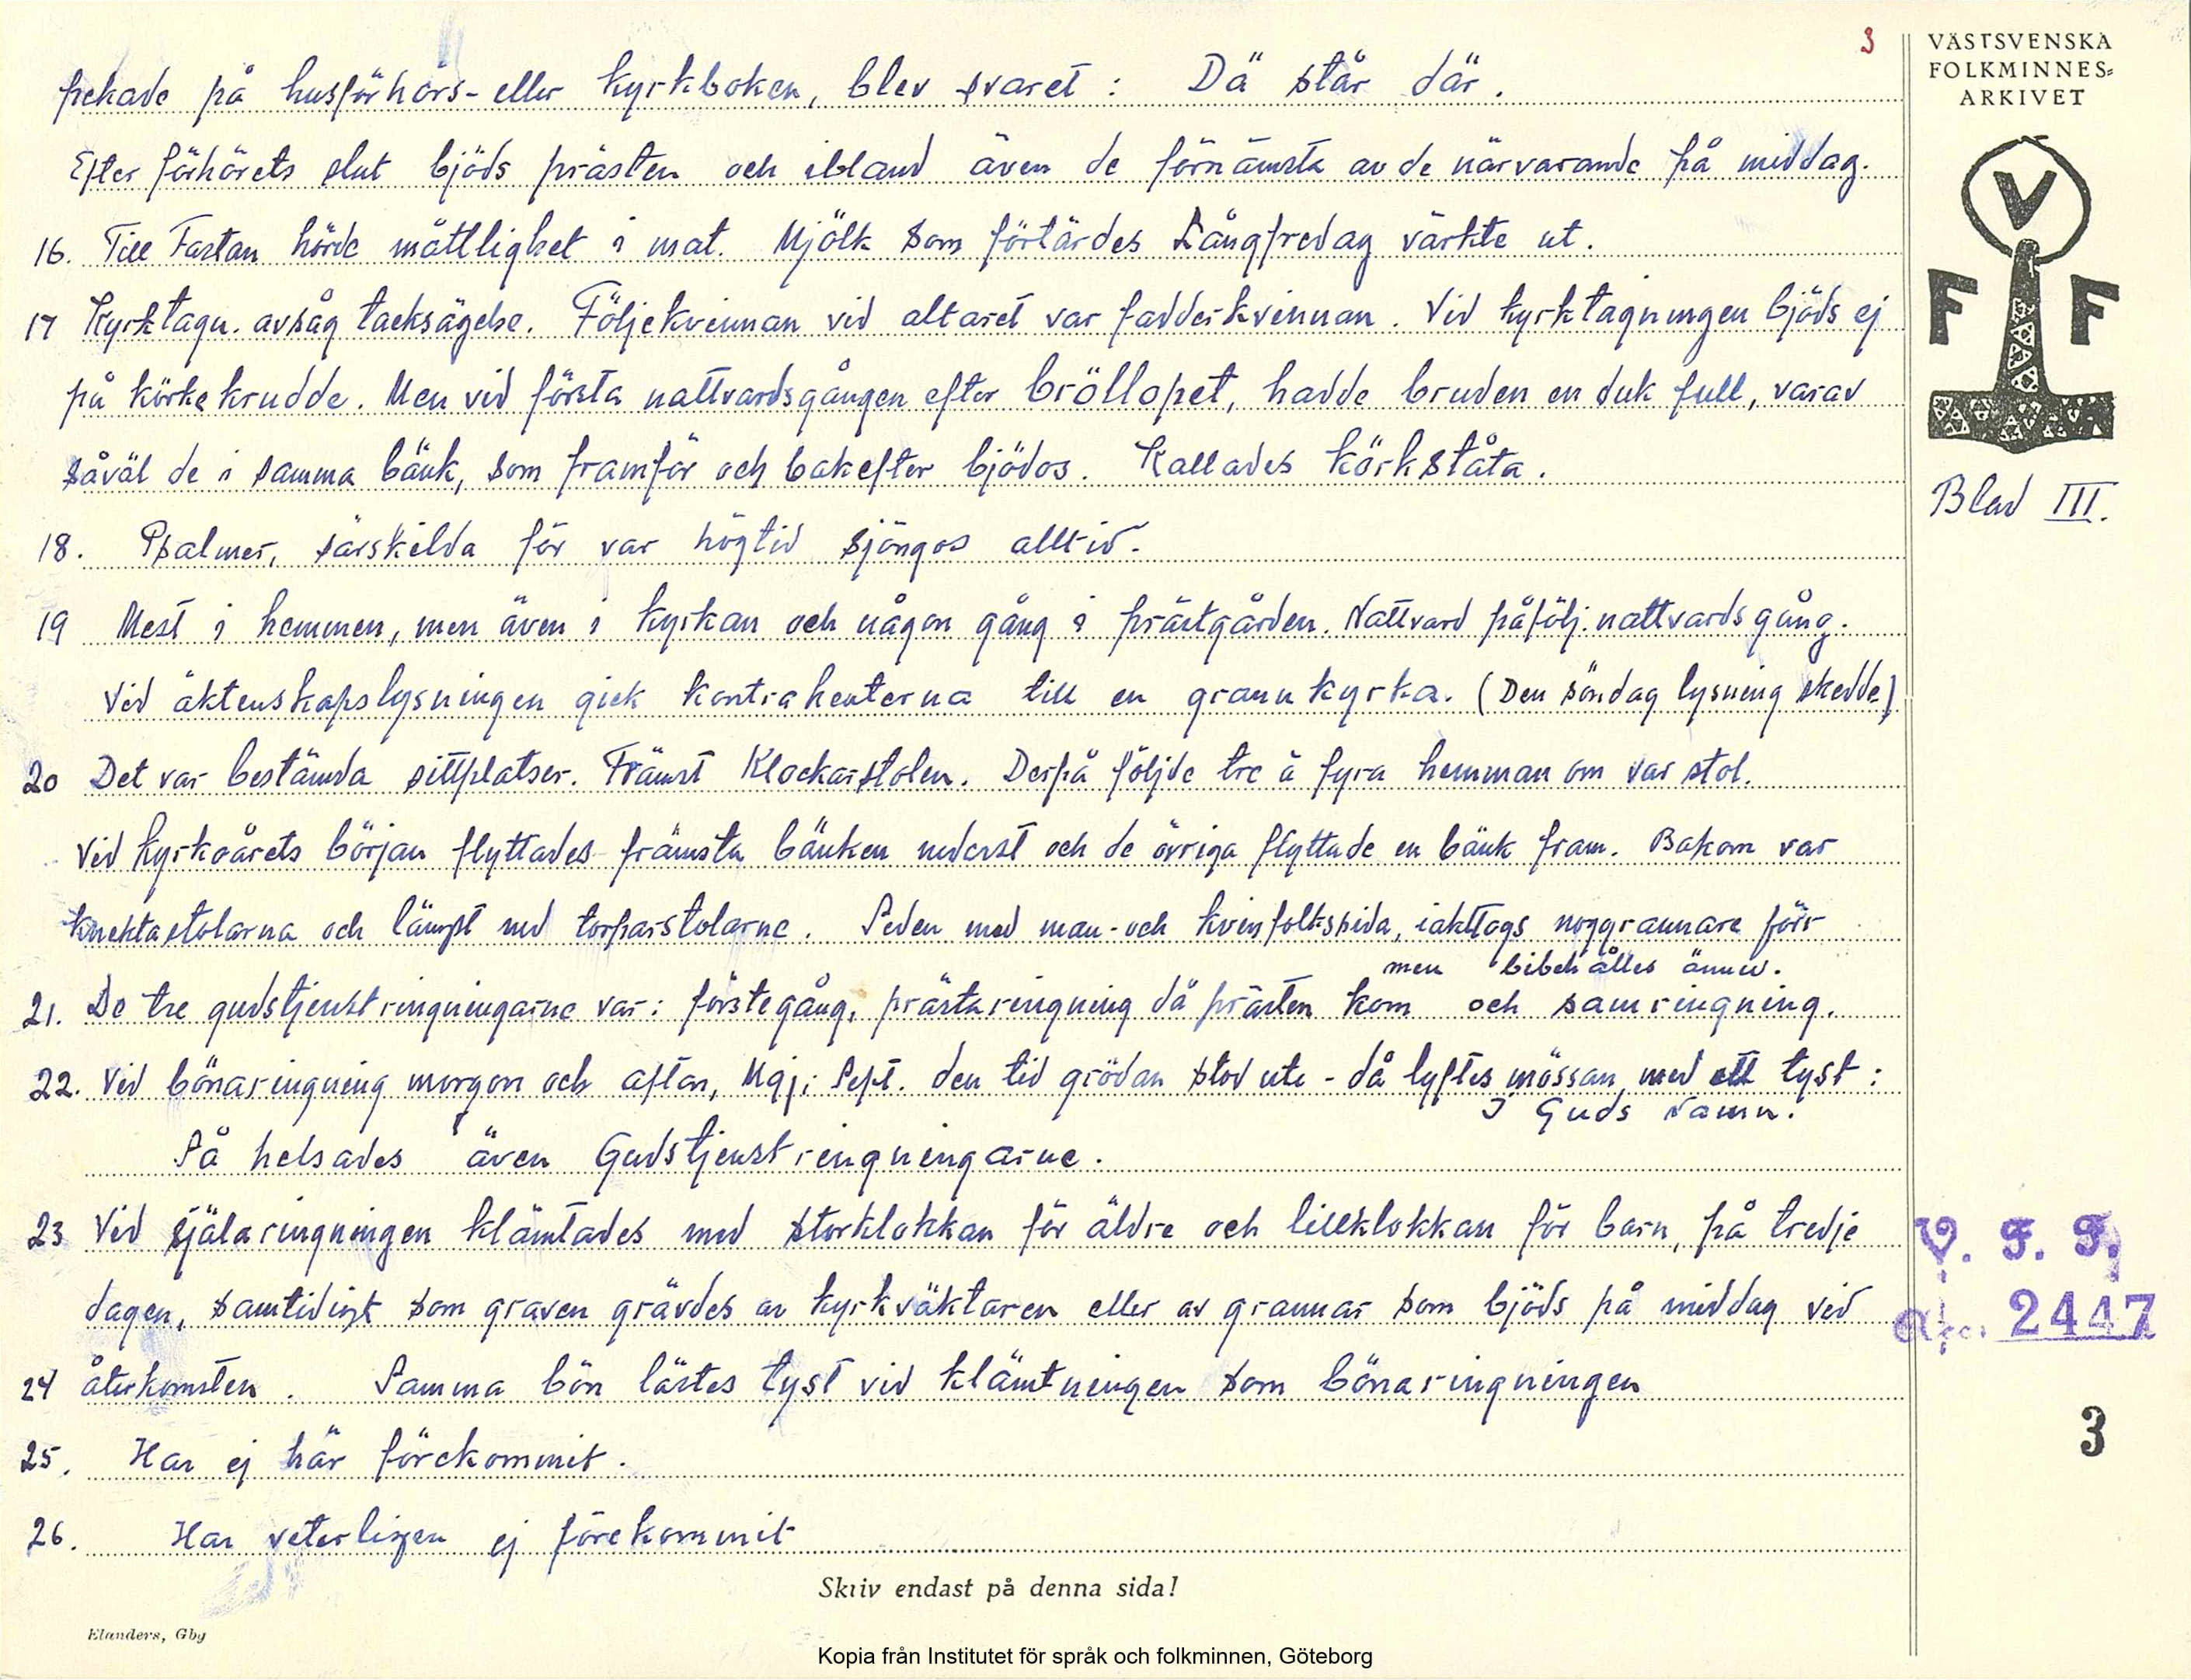 3
VÄSTSVENSKA
FOLKMINNES=
ARKIVET
V
F F
Blad III.
pekade på husförhörs- eller kyrkboken, blev svaret : Dä står där.
Efter förhörets slut bjöds prästen och ibland även de förnämsta av de närvarande på middag.
16. Till Fastan hörde måttlighet i mat. Mjölk som förtärdes Långfredag värkte ut.
17 Kyrktagn. avsåg tacksägelse. Följekvinnan vid altaret var fadderkvinnan. Vid kyrktagningen bjöds ej
på körkekrudde. Men vid första nattvardsgången efter bröllopet, hadde bruden en duk full, varav
såväl de i samma bänk, som framför och bakefter bjödos. Kallades körkståta.
18. Psalmer, särskilda för var högtid sjöngos alltid.
19 Mest i hemmen, men även i kyrkan och någon gång i prästgården. Nattvard påfölj. nattvardsgång.
Vid äktenskapslysningen gick kontrahenterna till en grannkyrka. (Den söndag lysning skedde)
20 Det var bestämda sittplatser. Främst Klockarstolen. Derpå följde tre à fyra hemman om var stol.
Vid kyrkoårets början flyttades främsta bänken nederst och de övriga flyttade en bänk fram. Bakom var
knektastolarna och längst ned torparstolarne. Seden med man- och kvinfolkssida, iakttogs noggrannare förr
men bibehålles ännu.
21. De tre gudstjenstringningarne var: förstegång, prästaringning då prästen kom och samringning.
22. Vid bönaringning morgon och afton, Maj- Sept. den tid grödan stod ute - då lyftes mössan, med ett tyst :
I Guds Namn.
Så helsades även Gudstjenstringningarne.
23 Vid själaringningen klämtades med storklokkan för äldre och lillklokkan för barn, på tredje
dagen, samtidigt som graven grävdes av kyrkväktaren eller av grannar som bjöds på middag vid
24 återkomsten. Samma bön lästes tyst vid klämtningen som bönaringningen
25. Har ej här förekommit.
26. Har veterligen ej förekommit
V. F. F.
Acc. 2447
3
Skriv endast på denna sida!
Elanders, Gbg
Kopia från Institutet för språk och folkminnen, Göteborg